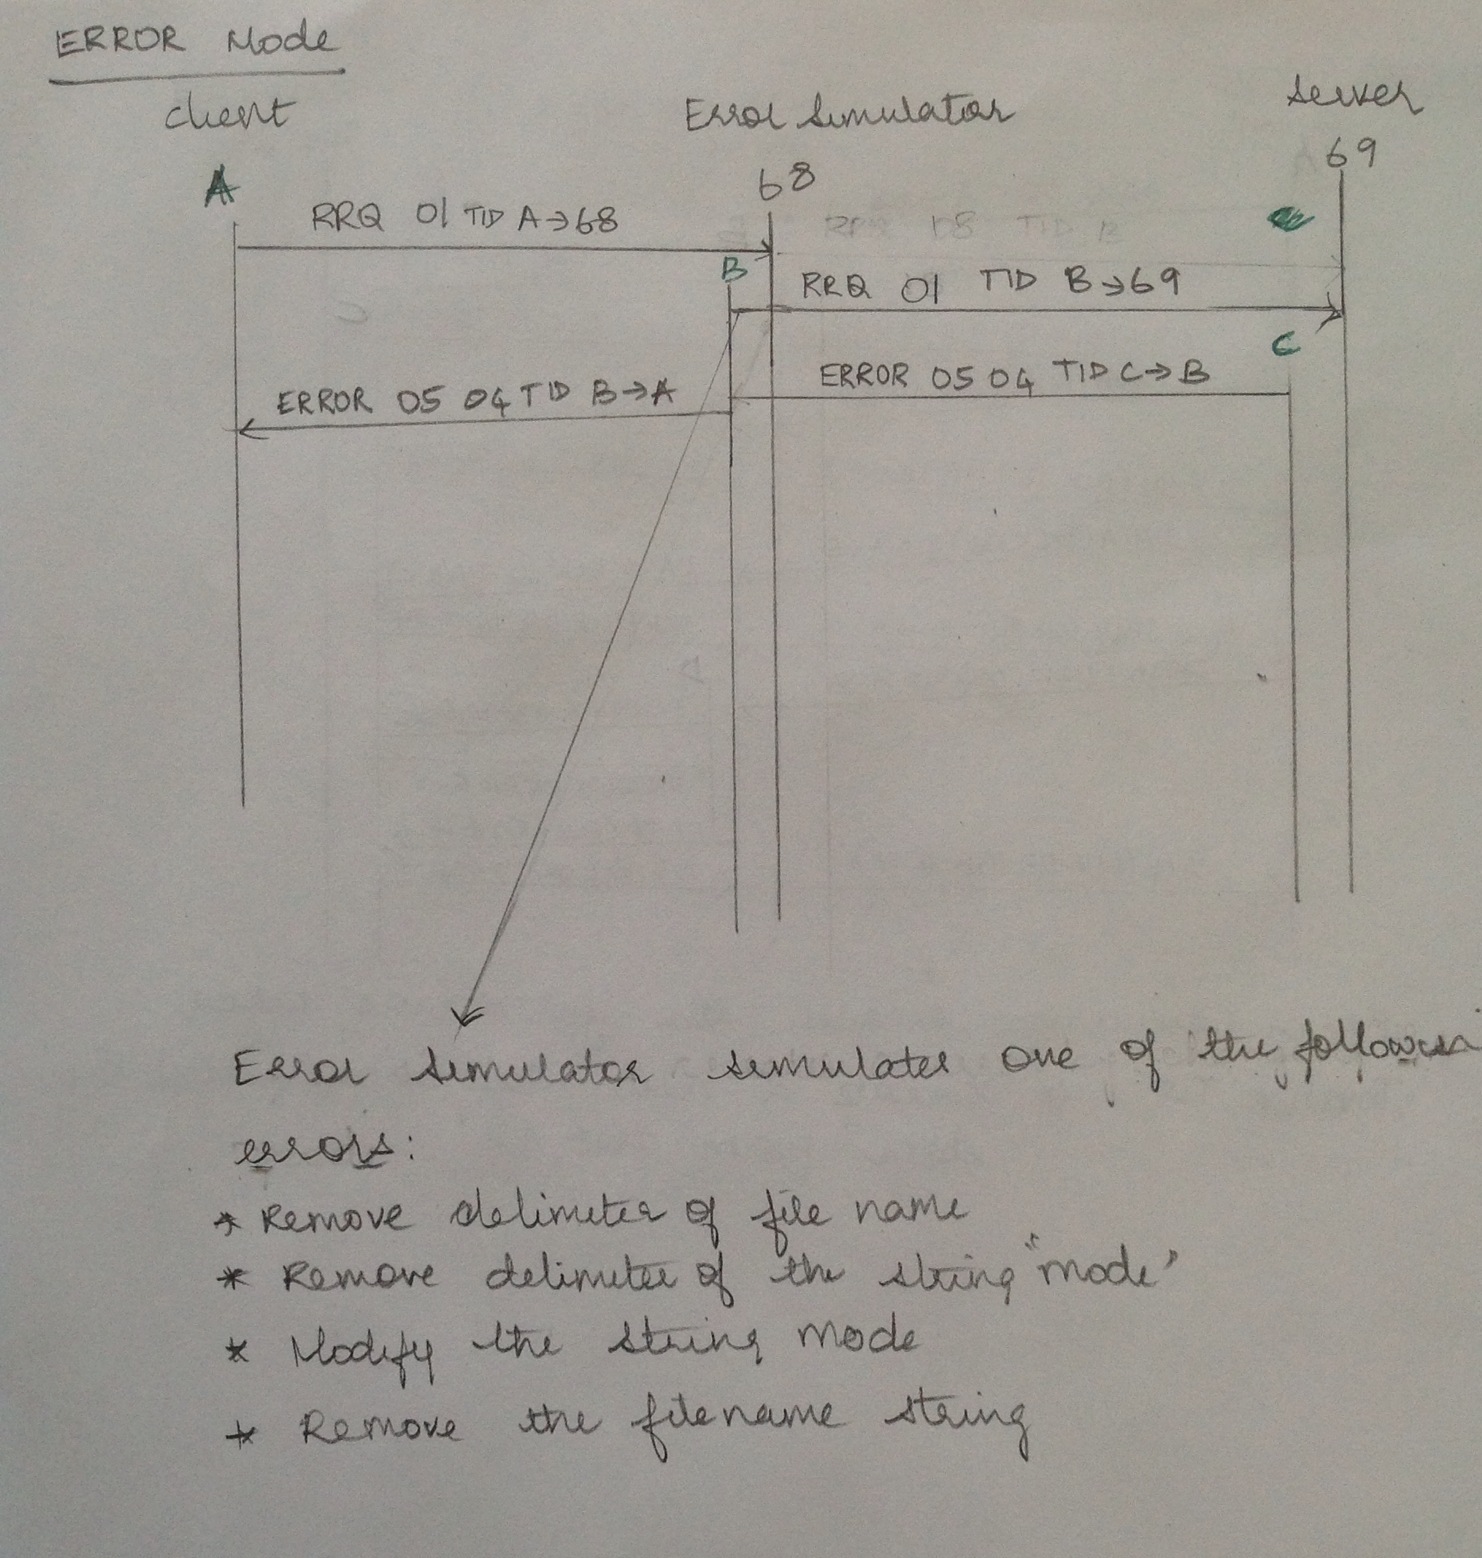 ERROR Mode
client
Error Simulator
server
A
68
69
RRQ 01 TID A→68
B
RRQ 01 TID B→69
C
ERROR 05 04 TID C→B
ERROR 05 04 TID B→A
Error simulator simulates one of the
errors:
* Remove delimeter of file name
* Remove delimeter of the string "mode"
* Modify the string mode
* Remove the filename string